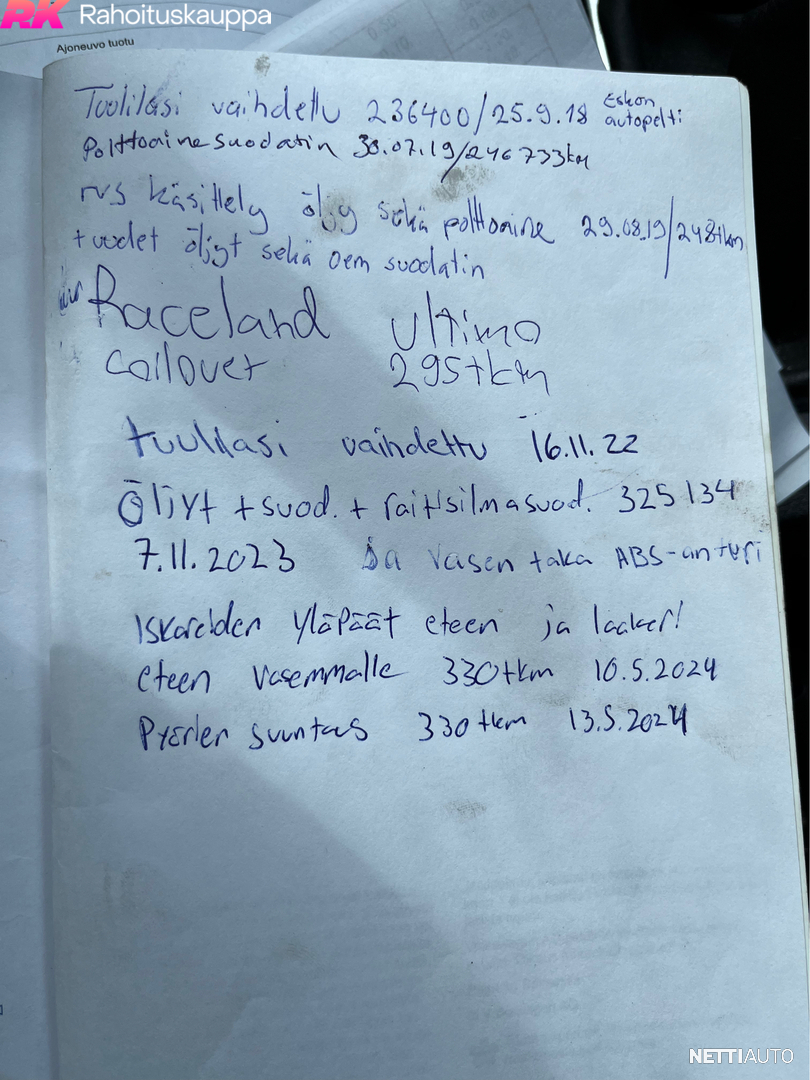 RK Rahoituskauppa
Ajoneuvo tuotu
Tuulilasi vaihdettu 236400/25.9.18 Eskon
autopelti
Polttoainesuodatin 30.07.19/246733km
rvs käsittely öljy sekä polttoaine 29.08.19/248tkm
+uudet öljyt sekä oem suodatin
Raceland ultimo
coilover 295tkm
tuulilasi vaihdettu 16.11.22
Öljyt +suod. + raitisilmasuod. 325134
7.11.2023 Ja vasen taka ABS-anturi
Iskareiden yläpäät eteen ja laakeri
eteen vasemmalle 330tkm 10.5.2024
Pyörien suuntaus 330tkm 13.5.2024
NETTIAUTO